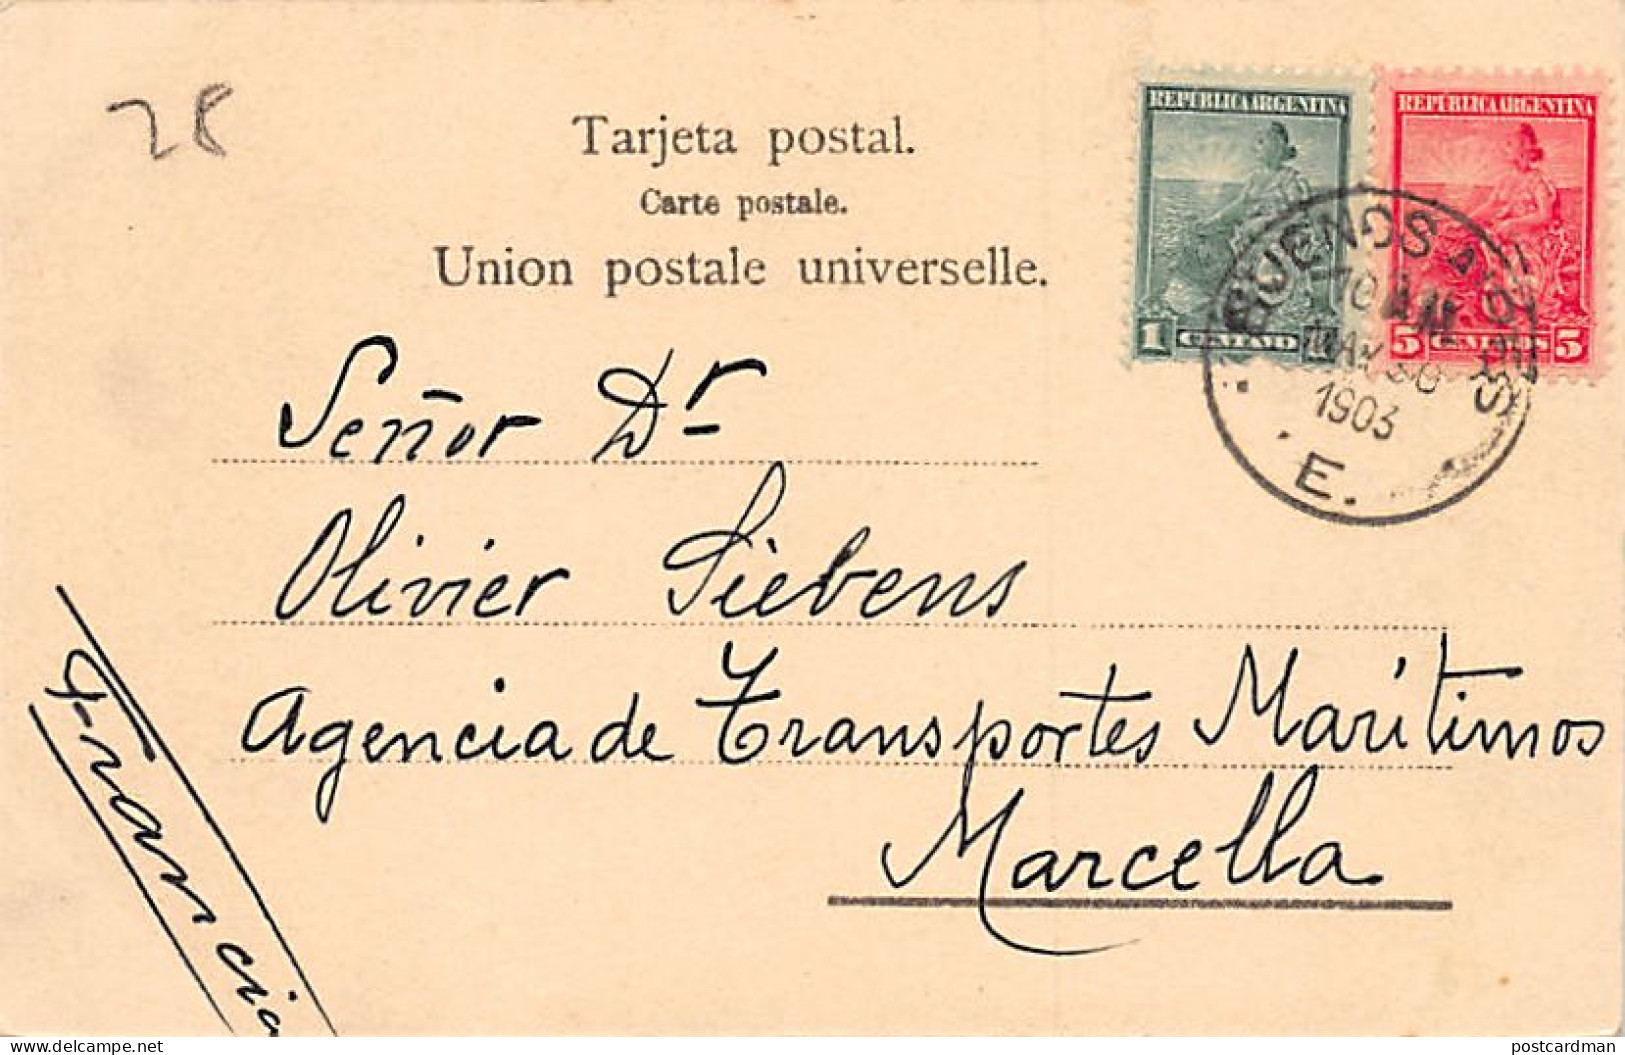 28
Tarjeta postal.
Carte postale.
Union postale universelle.
REPUBLICA ARGENTINA
1 CENTAVO 1
REPUBLICA ARGENTINA
5 CENTAVOS 5
BUENOS AIRES
10 AM
MAR 30
1903
E.
Señor Dr
Olivier Siebens
Agencia de Transportes Marítimos
Marcella
Francia
delcampe.net
postcardman